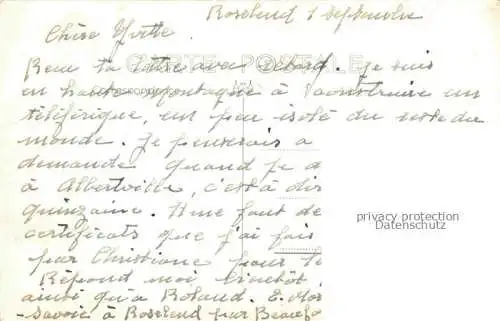 Roselend 1 Septembre
Chère Yvette.
CARTE POSTALE
Recu ta lettre avec retard. Je suis
en haute montagne à construire un
téléférique, un peu isolé du reste du
monde. Je penserais a
demande quand je d
à Albertville, c'est à dir
quinzaine. Il me faut de
certificats que j'ai fais
par Christiane pour te
Répond moi bientôt
ainsi qu'a Roland. E.
Savoie à Roselend par Beaufo
privacy protection
Datenschutz